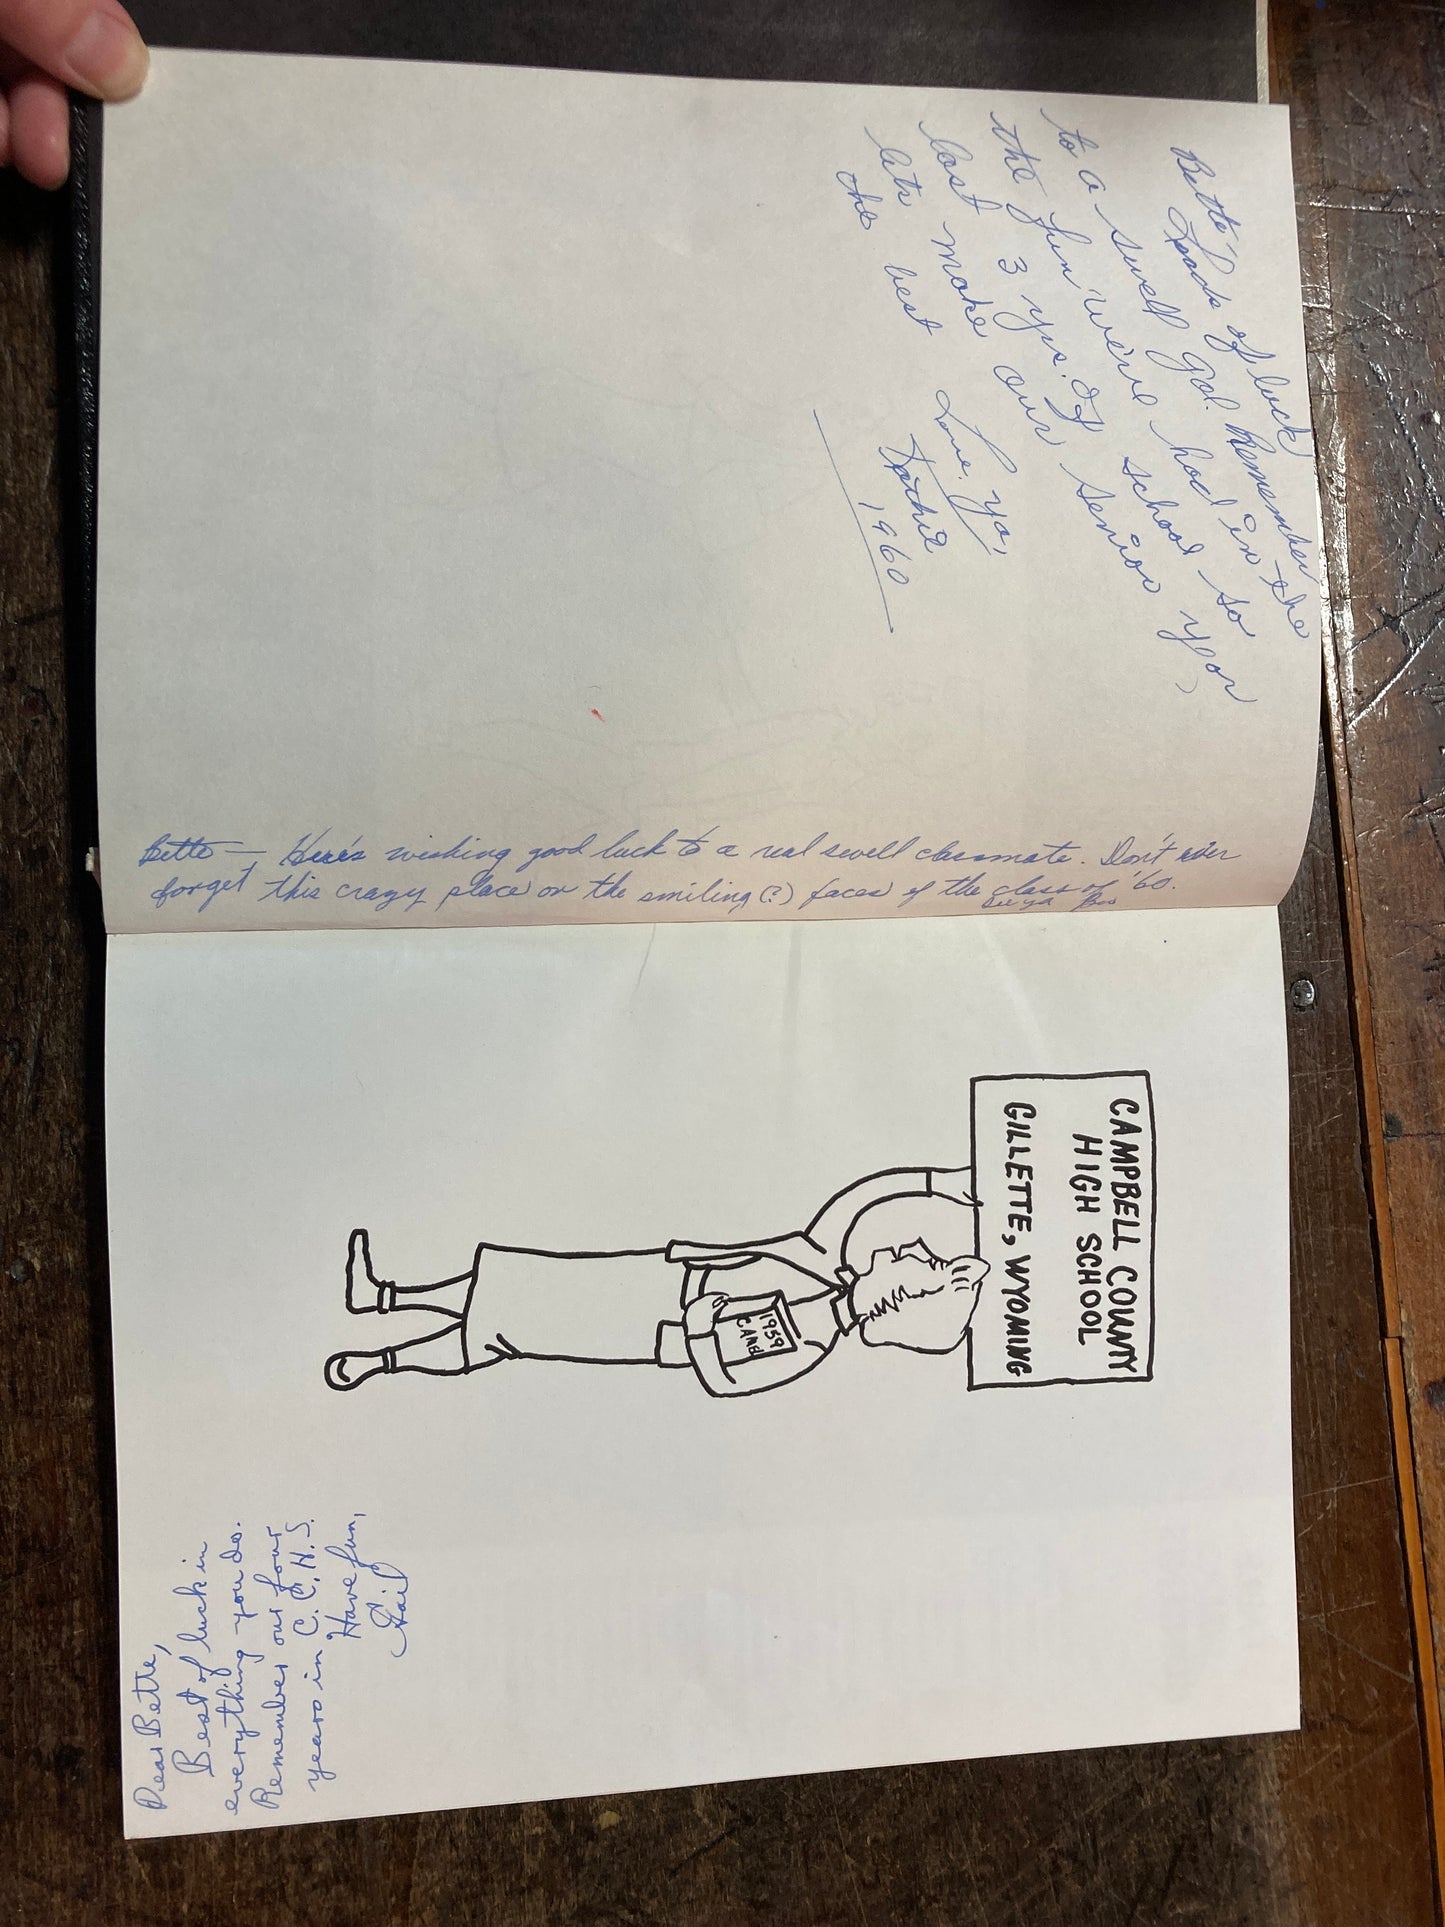 Bette,
Loads of luck
to a swell gal. Remember
the fun we've had in the
last 3 yrs. of school so
lets make our senior year
the best
Love ya,
Kathie
1960
Bette — Here's wishing good luck to a real swell classmate. Don't ever
forget this crazy place or the smiling (?) faces of the class of '60.
See ya Boo
CAMPBELL COUNTY
HIGH SCHOOL
GILLETTE, WYOMING
1959
CAMEL
Dear Bette,
Best of luck in
everything you do.
Remember our four
years in C.C.H.S.
Have fun,
Gail